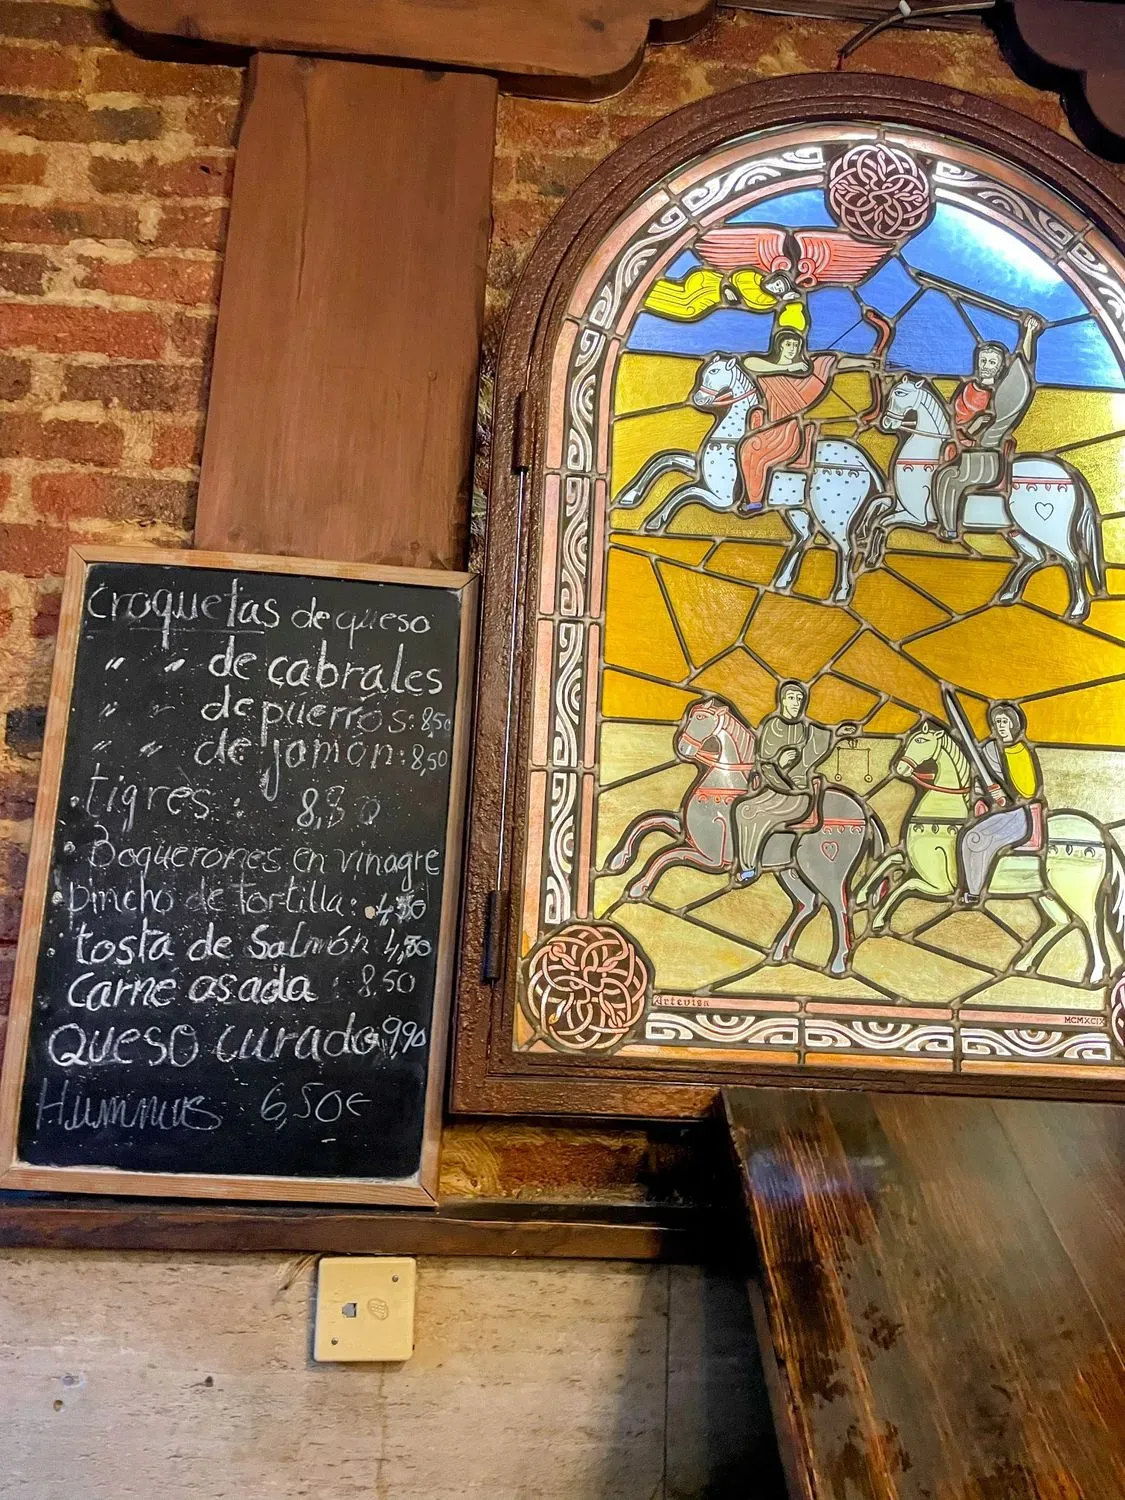 croquetas de queso
" " de cabrales
" " de puerros: 8,50
" " de jamón: 8,50
· tigres: 8,80
· Boquerones en vinagre
· pincho de tortilla:
· tosta de Salmón 4,80
carne asada : 8.50
Queso curado 9,90
Hummus 6,50€
Artevisa
MCMXCIX